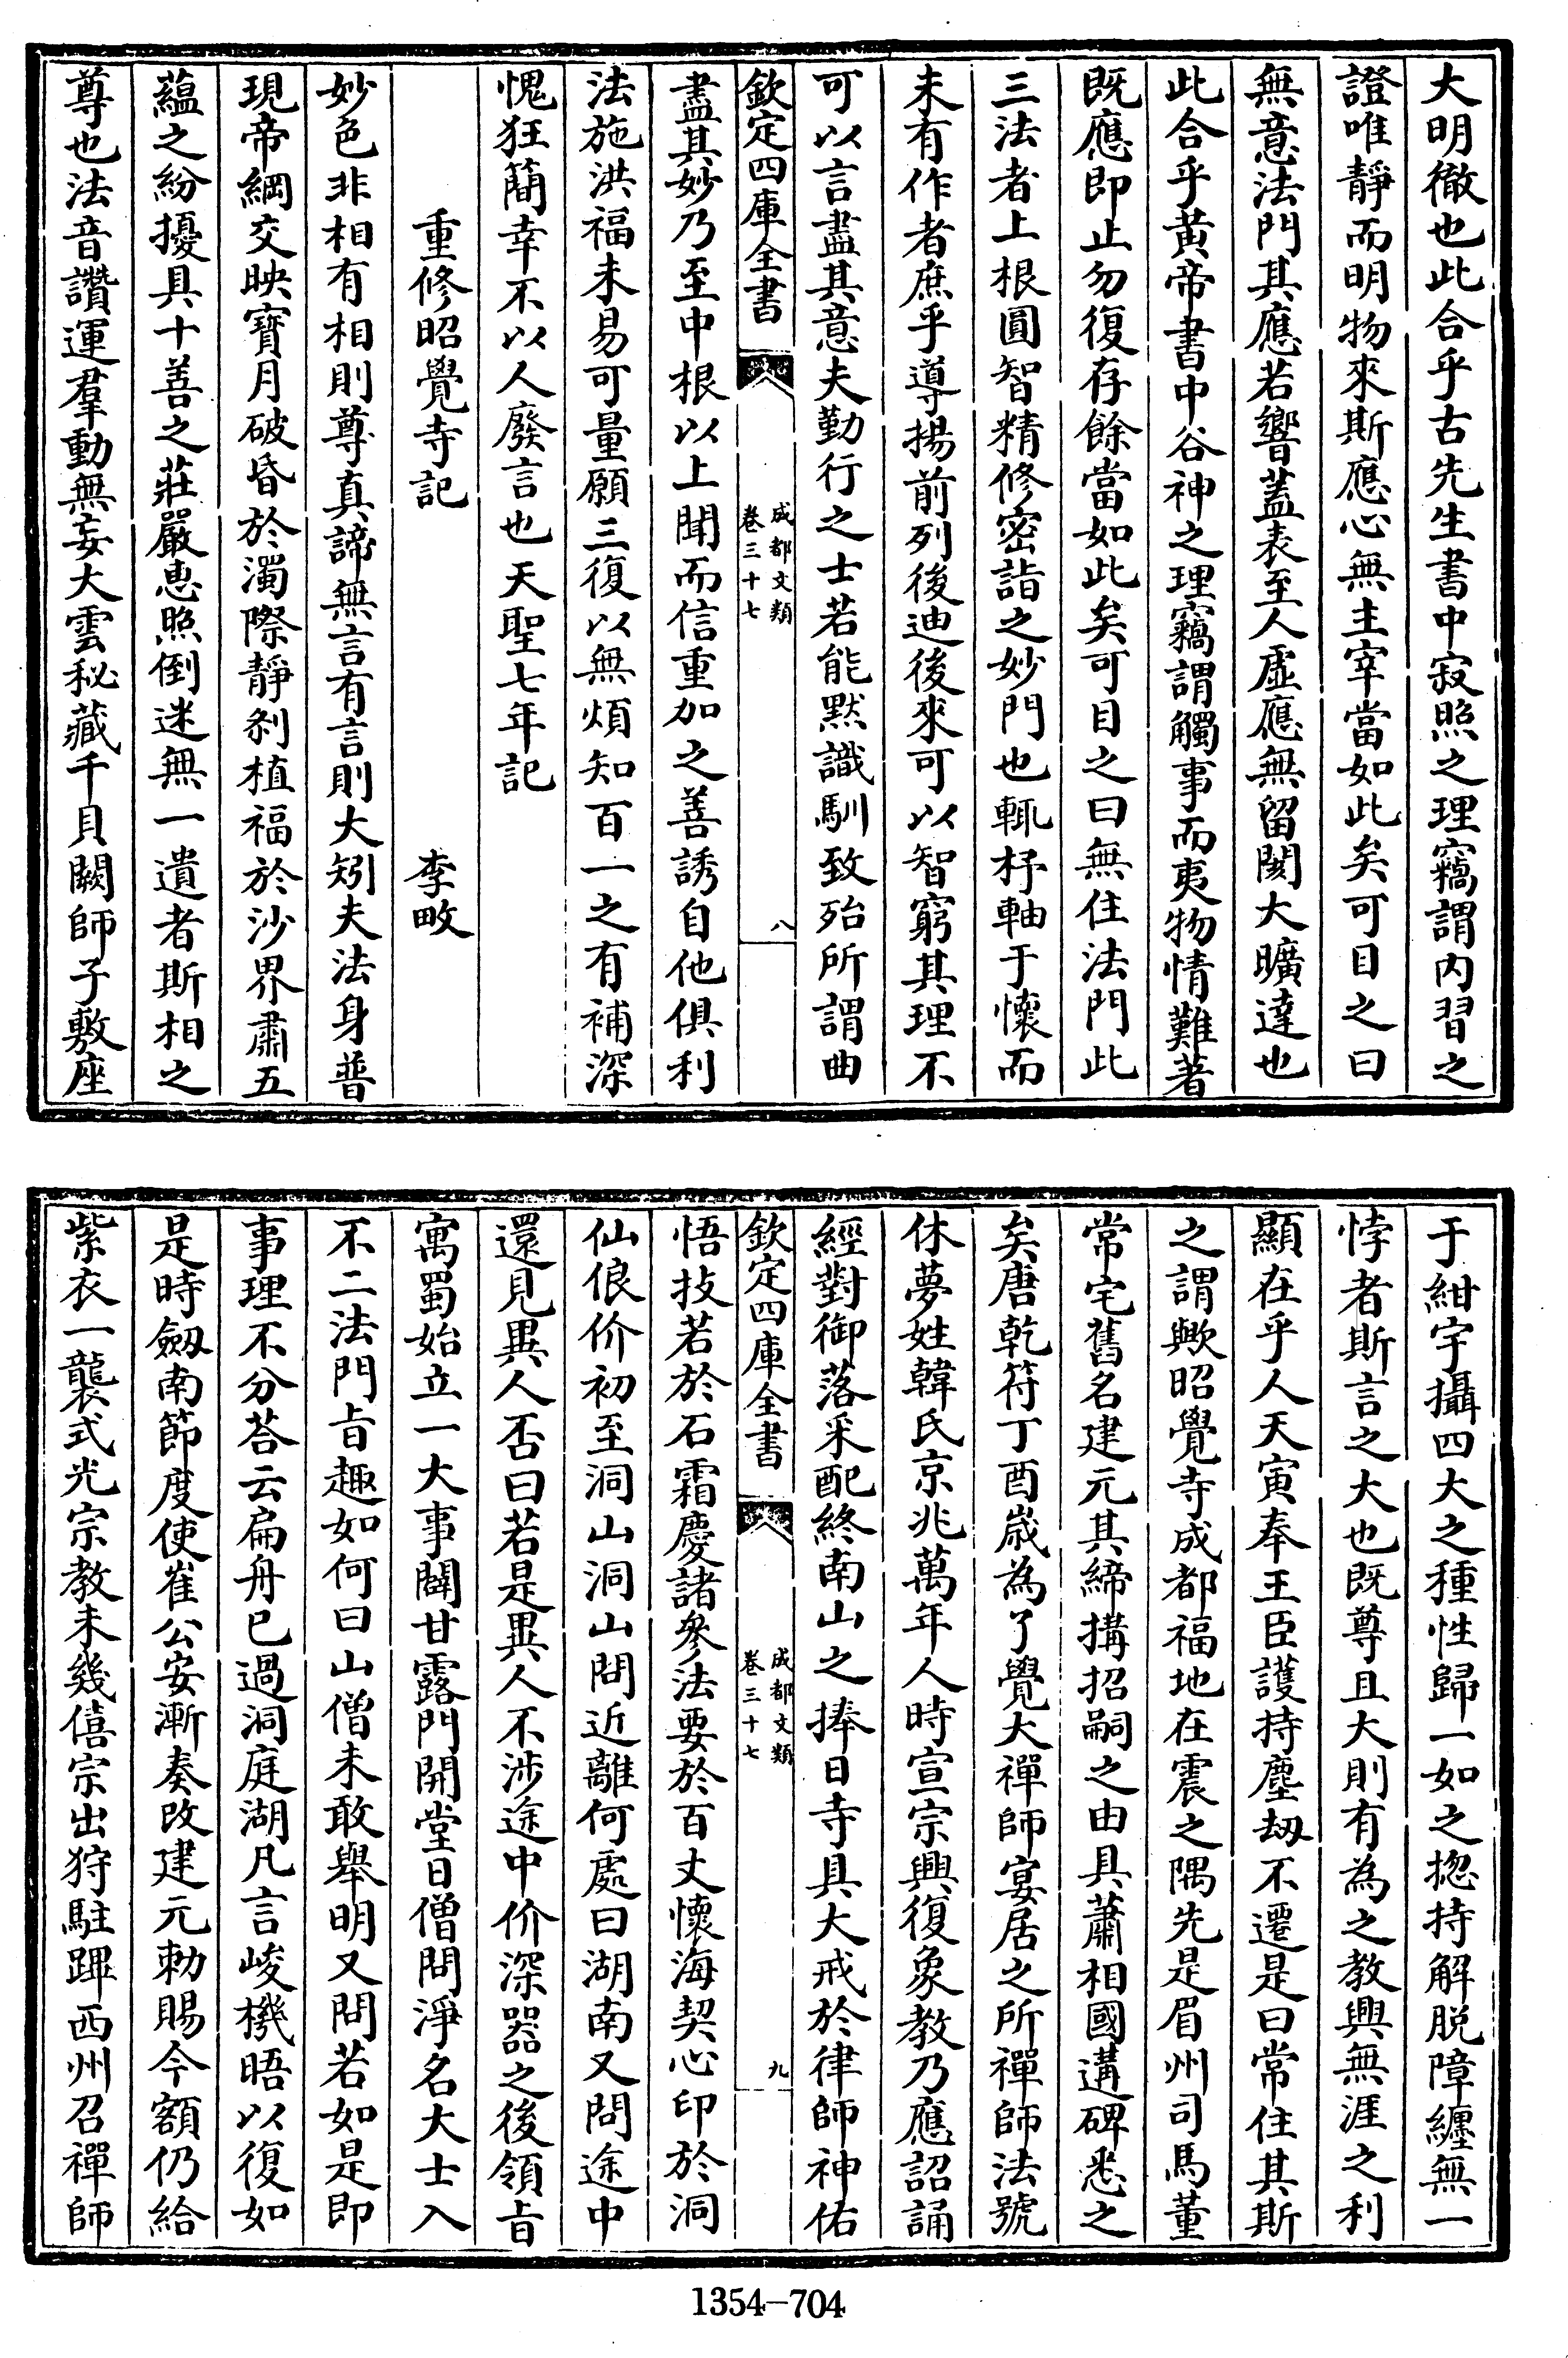 大明徹也此合乎古先生書中寂照之理竊謂内習之
證唯靜而明物來斯應心無主宰當如此矣可目之曰
無意法門其應若響蓋表至人虛應無留閡大曠達也
此合乎黄帝書中谷神之理竊謂觸事而夷物情難著
既應即止勿復存餘當如此矣可目之曰無住法門此
三法者上根圓智精修密詣之妙門也輒杼軸于懷而
未有作者庶乎導揚前列後迪後來可以智窮其理不
可以言盡其意夫勤行之士若能黙識馴致殆所謂曲
欽定四庫全書
成都文類
卷三十七
八
盡其妙乃至中根以上聞而信重加之善誘自他俱利
法施洪福未易可量願三復以無煩知百一之有補深
愧狂簡幸不以人廢言也天聖七年記
重修昭覺寺記 李畋
妙色非相有相則尊真諦無言有言則大矧夫法身普
現帝綱交映寶月破昏於濁際靜刹植福於沙界肅五
蘊之紛擾具十善之莊嚴惠照倒迷無一遺者斯相之
尊也法音讚運羣動無妄大雲秘藏千貝闕師子敷座
于紺宇攝四大之種性歸一如之揔持解脱障纏無一
悖者斯言之大也既尊且大則有為之教興無涯之利
顯在乎人天寅奉王臣護持塵劫不遷是曰常住其斯
之謂歟昭覺寺成都福地在震之隅先是眉州司馬董
常宅舊名建元其締搆招嗣之由具蕭相國遘碑悉之
矣唐乾符丁酉歲為了覺大禪師宴居之所禪師法號
休夢姓韓氏京兆萬年人時宣宗興復象教乃應詔誦
經對御落采配終南山之捧日寺具大戒於律師神佑
欽定四庫全書
成都文類
卷三十七
九
悟技若於石霜慶諸參法要於百丈懷海契心印於洞
仙俍价初至洞山洞山問近離何處曰湖南又問途中
還見異人否曰若是異人不涉途中价深器之後領旨
寓蜀始立一大事闢甘露門開堂日僧問淨名大士入
不二法門旨趣如何曰山僧未敢舉明又問若如是即
事理不分荅云扁舟已過洞庭湖凡言峻機晤以復如
是時劔南節度使崔公安漸奏改建元勅賜今額仍給
紫衣一襲式光宗教未幾僖宗出狩駐蹕西州召禪師
1354-704